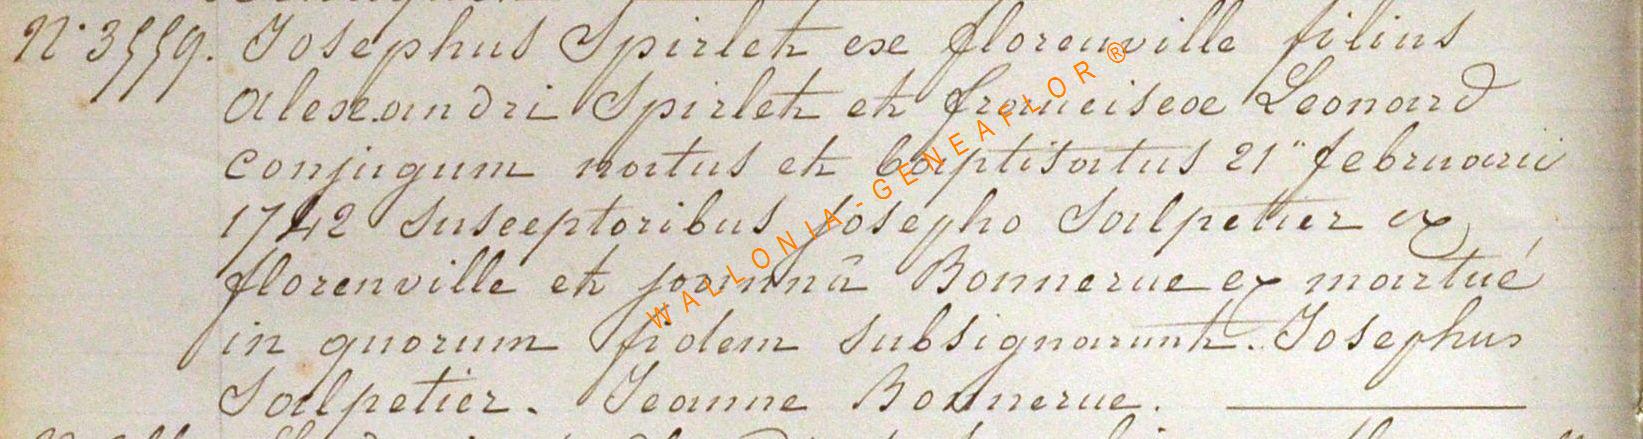 N° 3559. Josephus Spirlet ex florenville filius
alexandri Spirlet et franciscoe Leonard
conjugum natus et baptisatus 21" februarii
1742 susceptoribus josepho Salpetier ex
florenville et joannâ Bonnerue ex martué
in quorum fidem subsignarunt. Josephus
Salpetier. Jeanne Bonnerue.
WALLONIA-GENEAFLOR ®